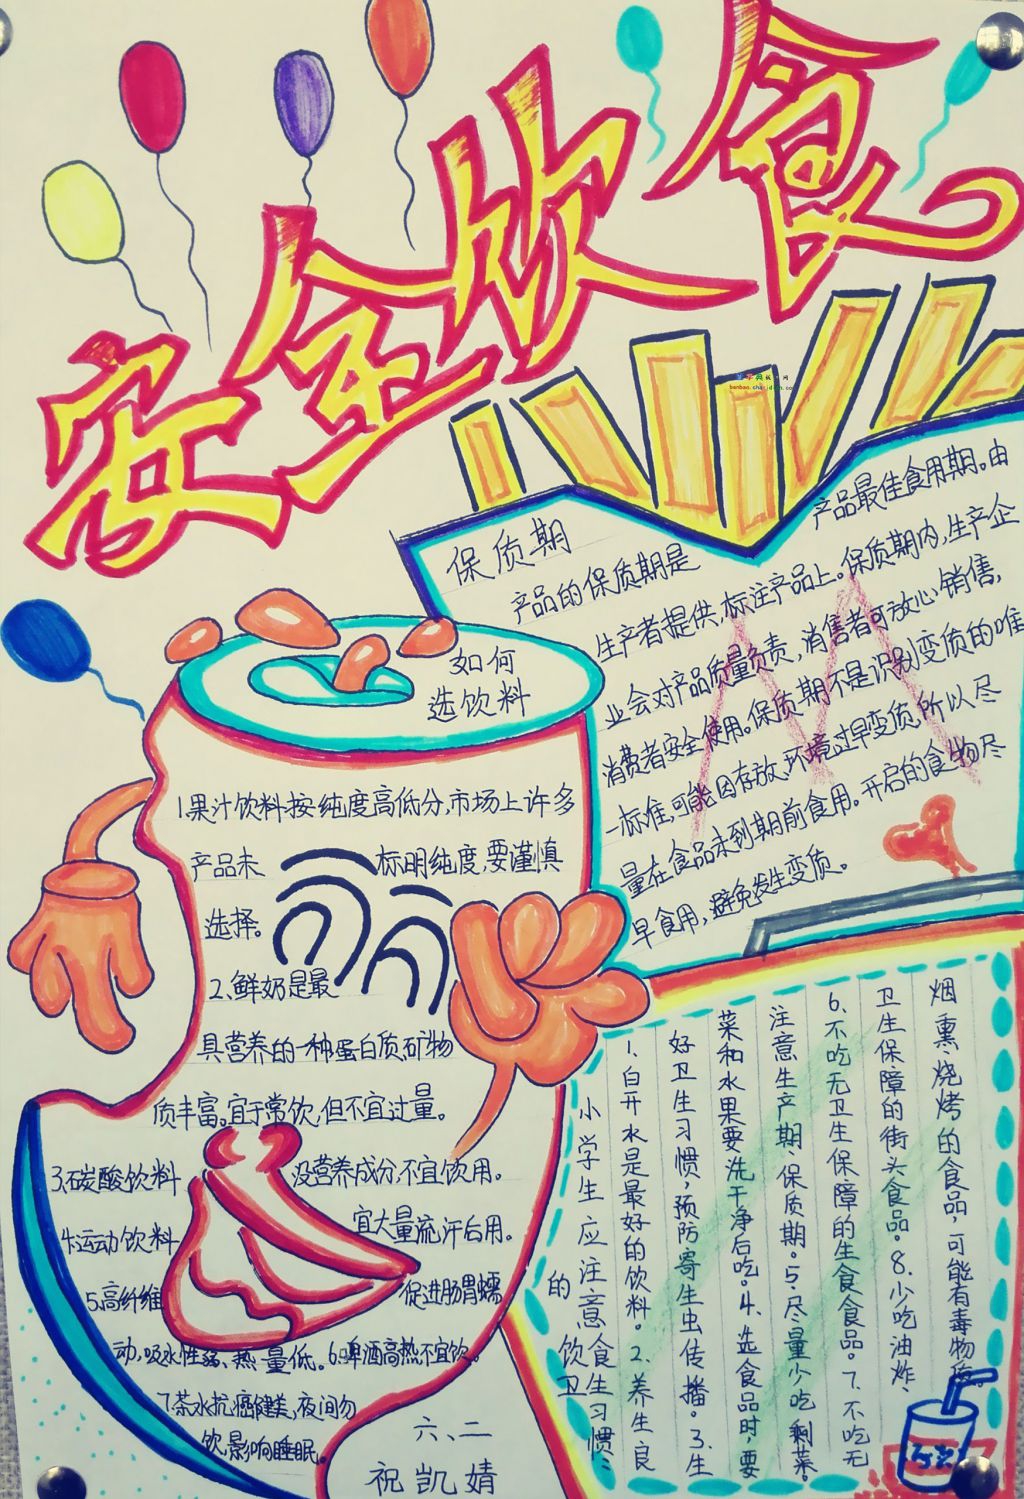 安全饮食
保质期
产品的保质期是
产品最佳食用期。由
生产者提供,标注产品上。保质期内,生产企
业会对产品质量负责,消售者可放心销售,
消费者安全使用。保质期不是识别变质的唯
一标准,可能因存放、环境过早变质,所以尽
量在食品未到期前食用。开启的食物尽
早食用,避免发生变质。
如何
选饮料
1.果汁饮料按纯度高低分,市场上许多
产品未标明纯度,要谨慎
选择。
2、鲜奶是最
具营养的一种蛋白质、矿物
质丰富。宜于常饮,但不宜过量。
3、碳酸饮料没营养成分,不宜饮用。
4.运动饮料宜大量流汗后用。
5.高纤维促进肠胃蠕
动,吸水性强、热量低。6.啤酒高热不宜饮。
7.茶水抗癌健美,夜间勿
饮,影响睡眠。
六、二
祝凯婧
小学生应注意
的饮食
卫生习惯:
1.白开水是最好的饮料。2.养生良
好卫生习惯,预防寄生虫传播。3.生
菜和水果要洗干净后吃。4、选食品时,要
注意生产期、保质期。5.尽量少吃剩菜。
6.不吃无卫生保障的生食食品。7.不吃无
卫生保障的街头食品。8.少吃油炸、
烟熏、烧烤的食品,可能有毒物质。